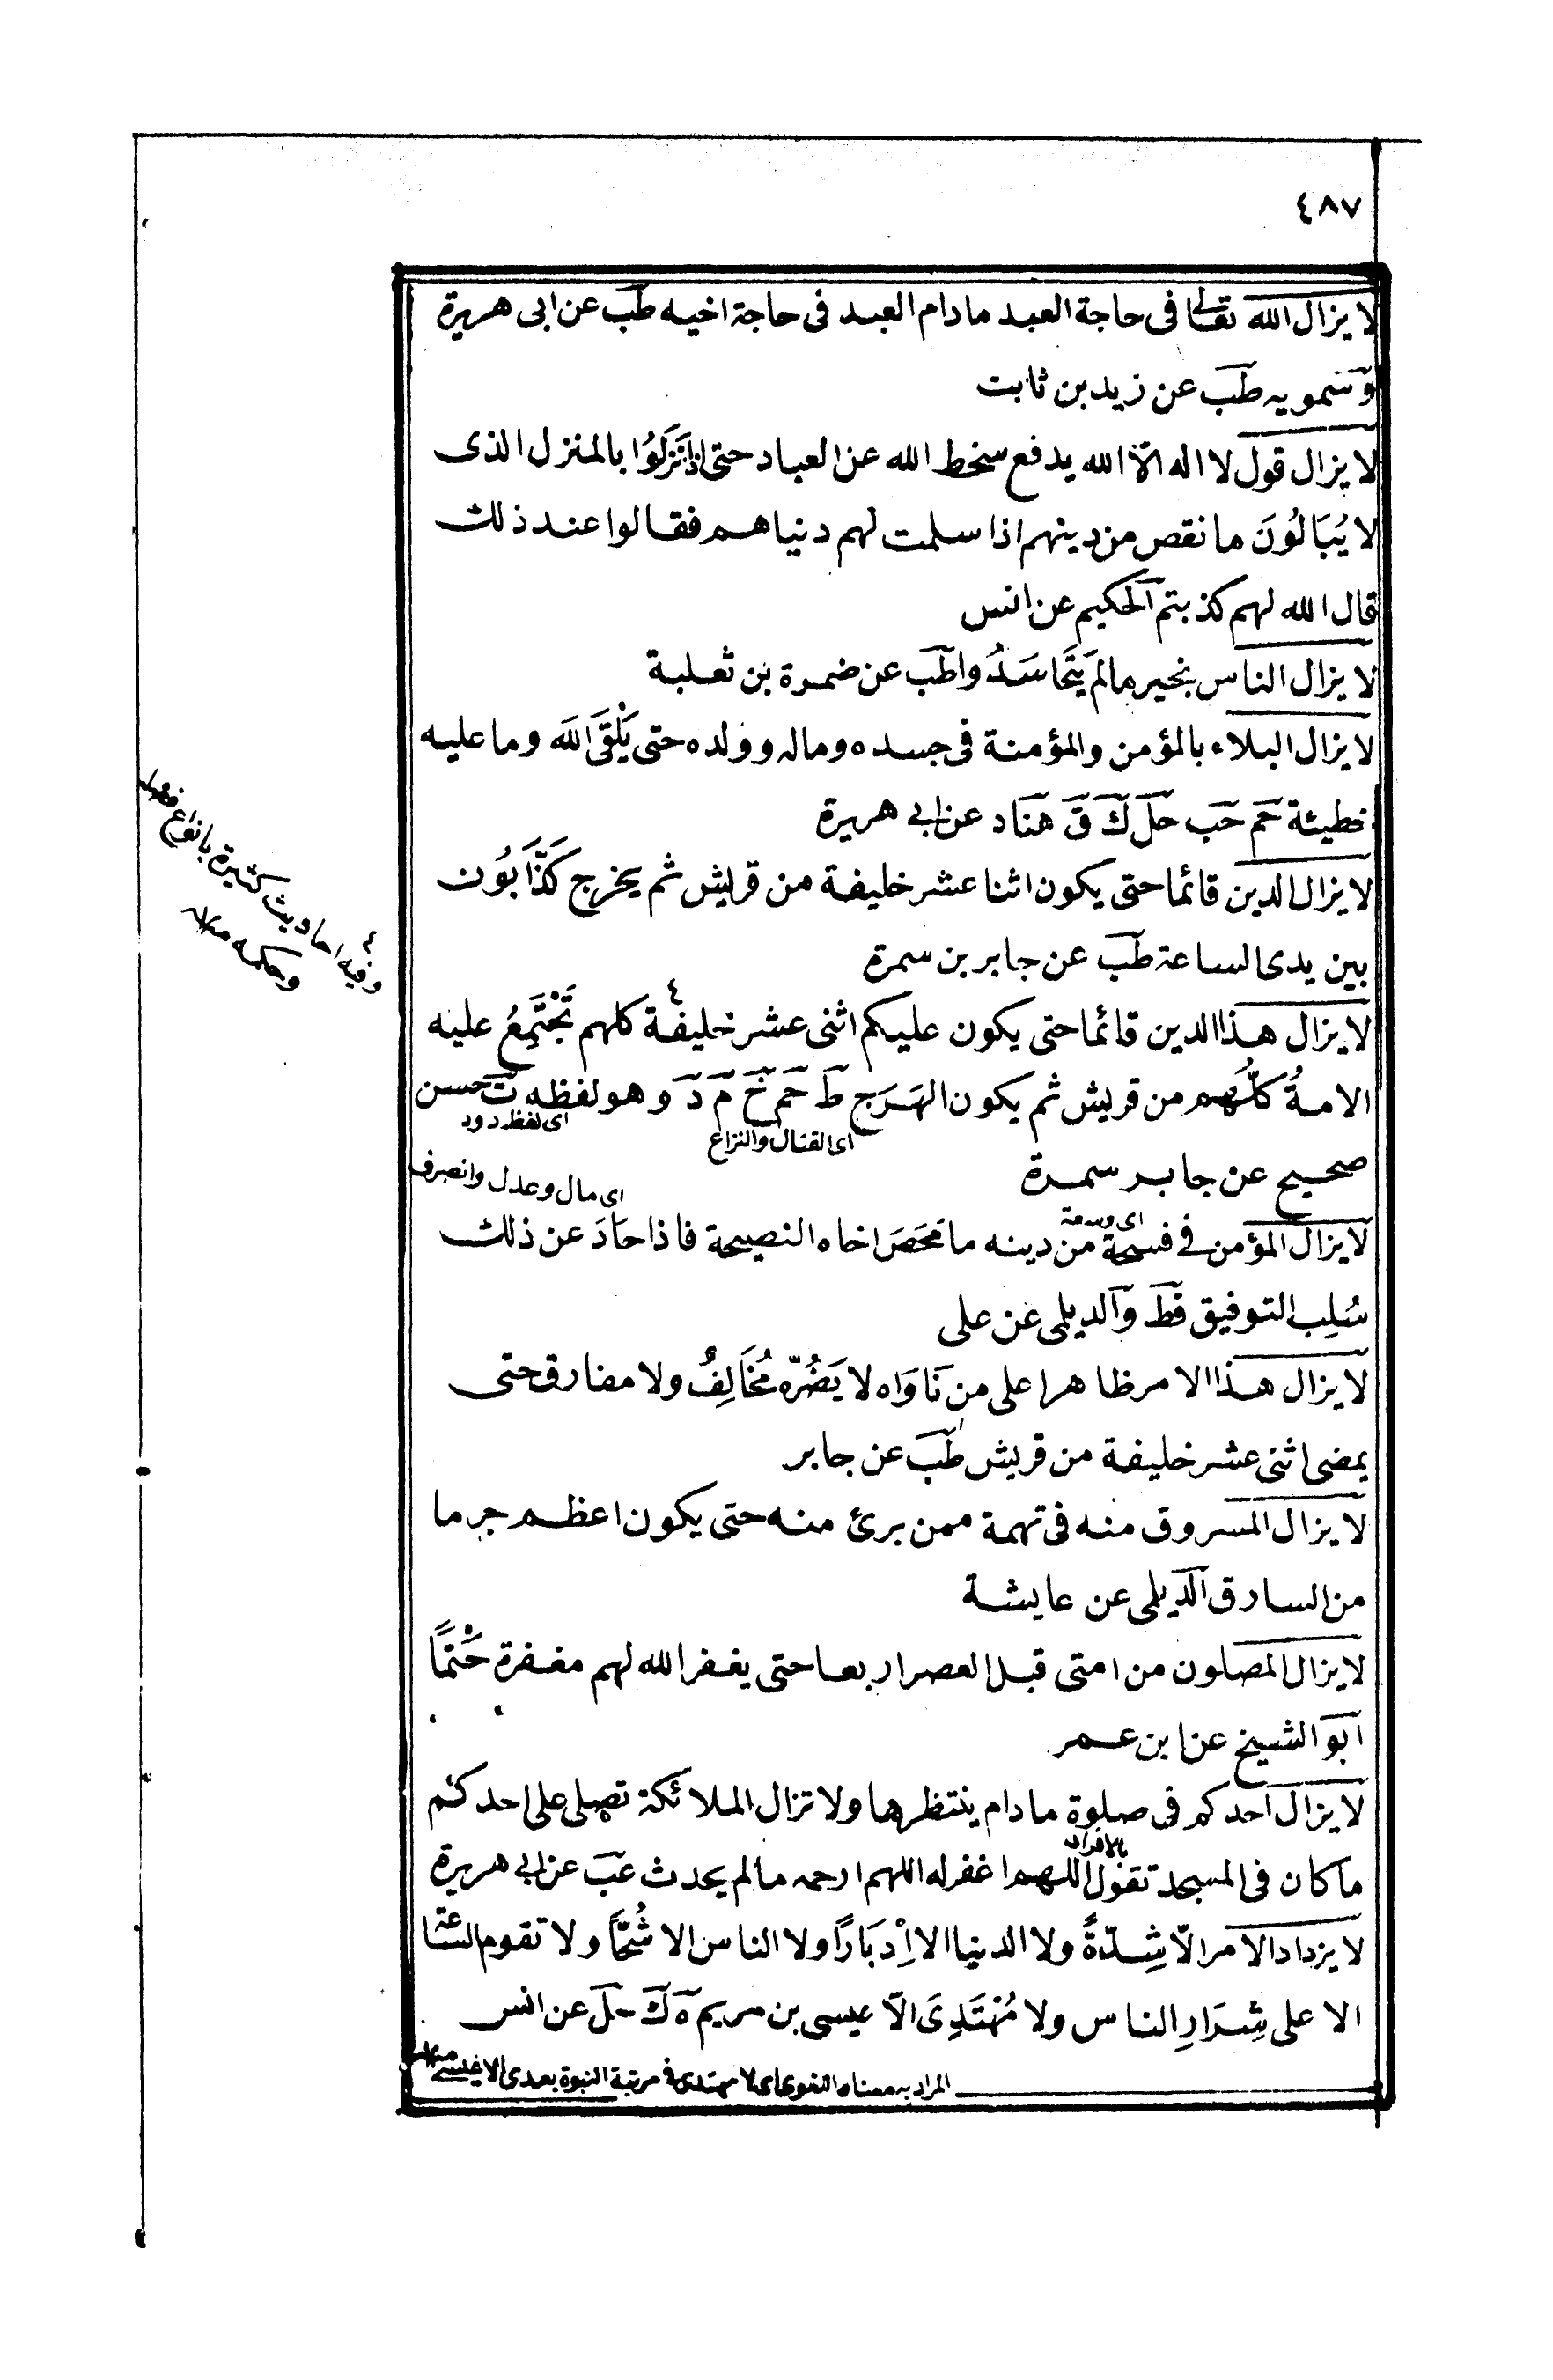 ٤٨٧
لا يزال الله تعالى فى حاجة العبد مادام العبد فى حاجة اخيه طب عن ابى هريرة
وسمويه طب عن زيد بن ثابت
لا يزال قول لا اله الّا الله يدفع سخط الله عن العباد حتى اذا نَزَلُوا بالمنزل الذى
لا يُبَالُونَ ما نقص من دينهم اذا سلمت لهم دنياهم فقالوا عند ذلك
قال الله لهم كذبتم الحكيم عن انس
لا يزال الناس بخير مالم يَتَحَاسَدُوا طب عن ضمرة بن ثعلبة
لا يزال البلاء بالمؤمن والمؤمنة فى جسده وماله وولده حتى يَلْقَى الله وما عليه
خطيئة حم حب حل ك ق هناد عن ابى هريرة
لا يزال الدين قائما حتى يكون اثنا عشر خليفة من قريش ثم يخرج كَذَّابُون
بين يدى الساعة طب عن جابر بن سمرة
لا يزال هذا الدين قائما حتى يكون عليكم اثنى عشر خليفة ٤ كلهم تَجْتَمِعُ عليه
الامةُ كلُّهم من قريش ثم يكون الهَرَج ط حم خ م د وهو لفظه ت حسن
اى لفظ د ود
اى القتال والنزاع
صحيح عن جابر سمرة
اى مال وعدل وانصرف
اى وسعة
لا يزال المؤمن فى فسحة من دينه ما مَحَصَ اخاه النصيحة فاذا حَادَ عن ذلك
سُلِب التوفيق قط والديلمى عن على
لا يزال هذا الامر ظاهرا على من نَاوَاه لا يَضُرّه مُخَالِفٌ ولا مفارق حتى
يمضى اثنى عشر خليفة من قريش طب عن جابر
لا يزال المسروق منه فى تهمة ممن برئ منه حتى يكون اعظم جرما
من السارق الديلمى عن عايشة
لا يزال المصلون من امتى قبل العصر اربعا حتى يغفر الله لهم مغفرة حَتْمًا
ابو الشيخ عن ابن عمر
لا يزال احدكم فى صلوة مادام ينتظرها ولا تزال الملائكة تصلى على احدكم
بالافراد
ما كان فى المسجد تقول اللهم اغفر له اللهم ارحمه مالم يحدث عب عن ابى هريرة
لا يزداد الامر الّا شِدّةً ولا الدنيا الا اِدْبَارًا ولا الناس الا شُحًّا ولا تقوم الساعة
الا على شِرَارِ الناس ولا مُهْتَدِىَ الّا عيسى بن مريم ه ك حل عن انس
المراد به معناه اللغوى اى لا مهتدى فى مرتبة النبوة بعدى الا عيسى
٤
وفيه احاديث كثيرة بانواع